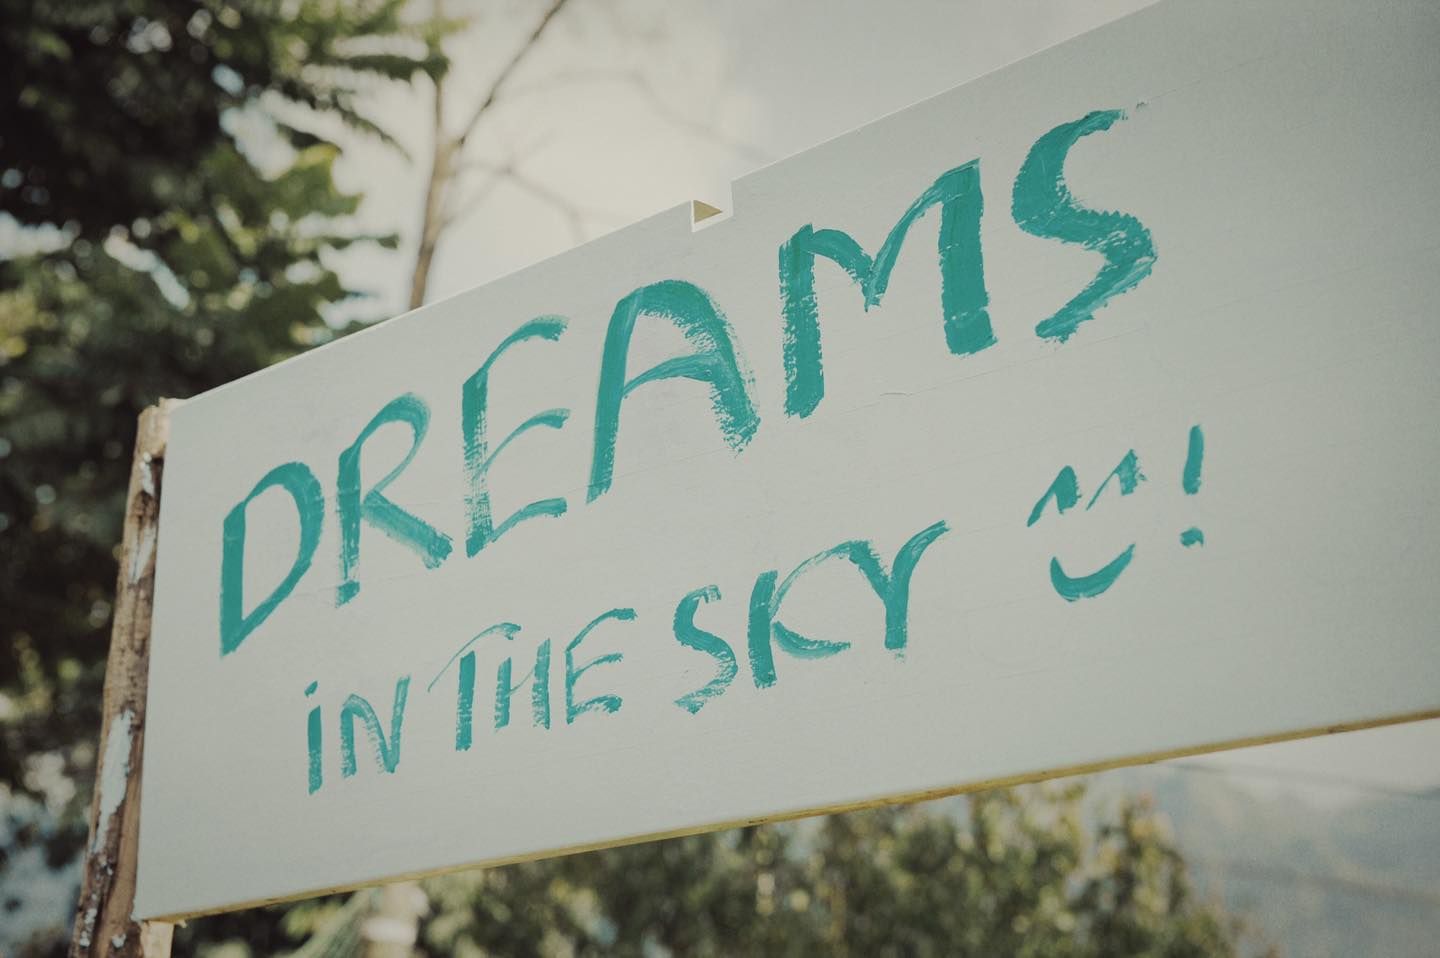 DREAMS
iN THE SKY ^^!